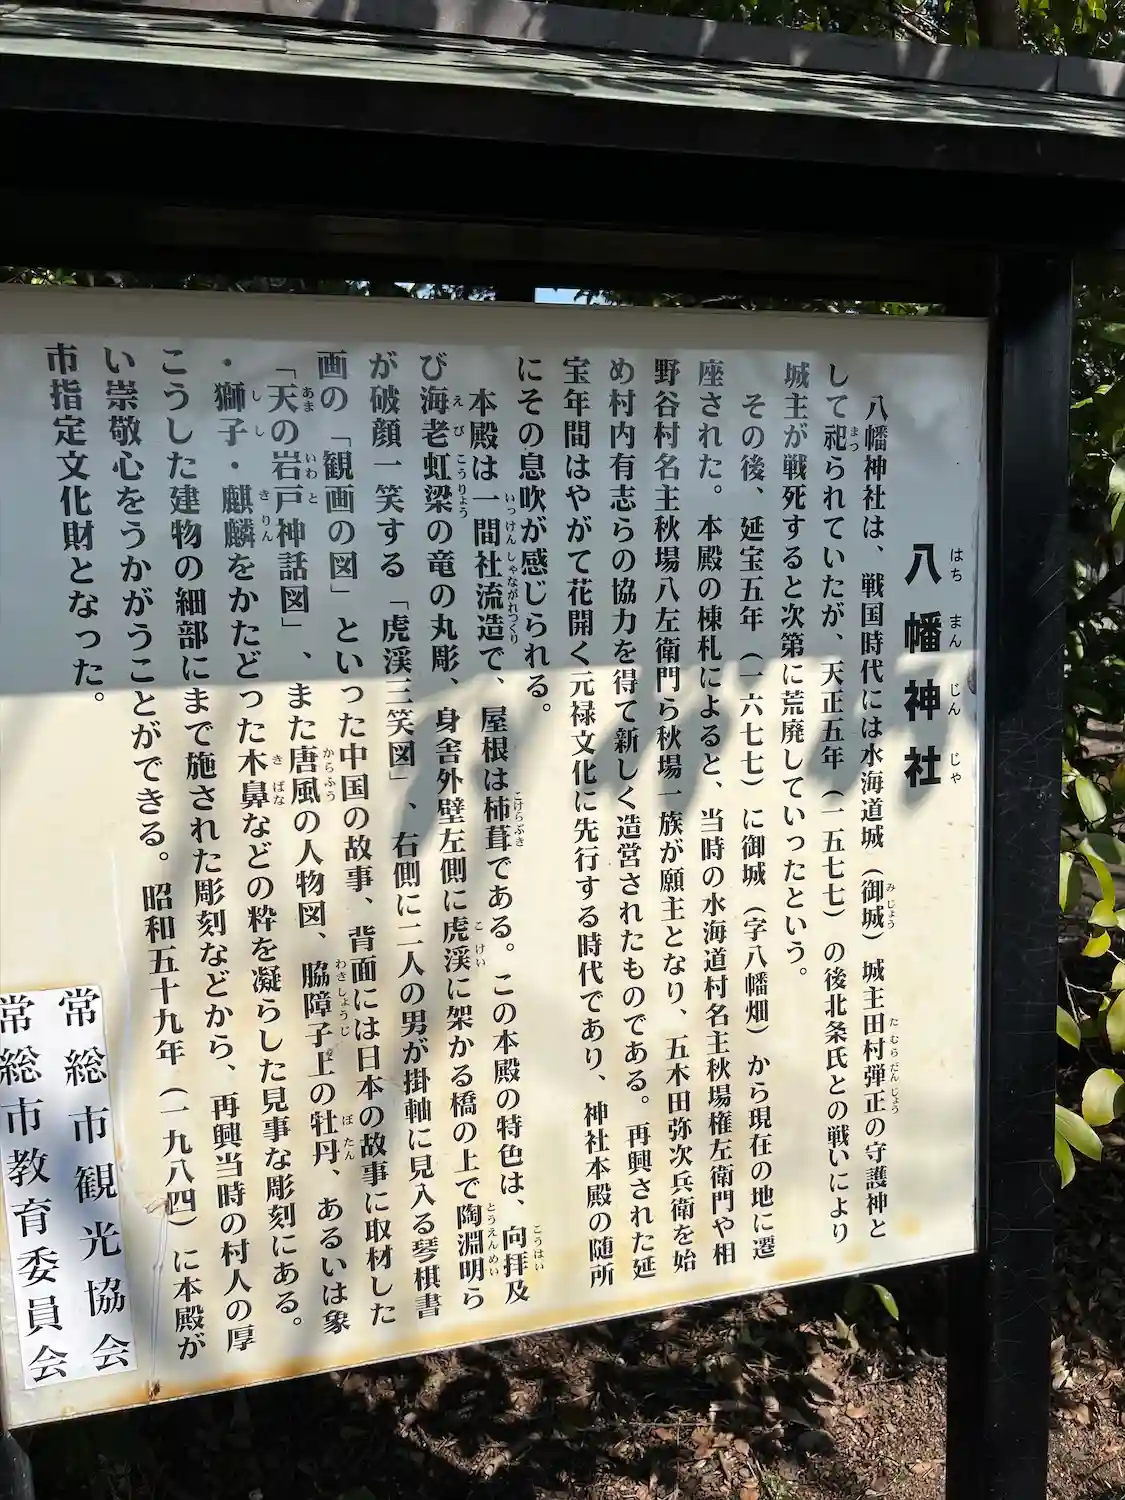 八幡神社
はちまんじんじゃ
八幡神社は、戦国時代には水海道城（御城）城主田村弾正の守護神と
みじょう
たむらだんじょう
して祀られていたが、天正五年（一五七七）の後北条氏との戦いにより
まつ
城主が戦死すると次第に荒廃していったという。
その後、延宝五年（一六七七）に御城（字八幡畑）から現在の地に遷
座された。本殿の棟札によると、当時の水海道村名主秋場権左衛門や相
野谷村名主秋場八左衛門ら秋場一族が願主となり、五木田弥次兵衛を始
め村内有志らの協力を得て新しく造営されたものである。再興された延
宝年間はやがて花開く元禄文化に先行する時代であり、神社本殿の随所
にその息吹が感じられる。
本殿は一間社流造で、屋根は柿葺である。この本殿の特色は、向拝及
いっけんしゃながれつくり
こけらぶき
こうはい
び海老虹梁の竜の丸彫、身舎外壁左側に虎渓に架かる橋の上で陶淵明ら
えび
こうりょう
こけい
とうえんめい
が破顔一笑する「虎渓三笑図」、右側に二人の男が掛軸に見入る琴棋書
画の「観画の図」といった中国の故事、背面には日本の故事に取材した
「天の岩戸神話図」、また唐風の人物図、脇障子上の牡丹、あるいは象
あま
いわと
からふう
わきしょうじ
ぼたん
・獅子・麒麟をかたどった木鼻などの粋を凝らした見事な彫刻にある。
しし
きりん
きばな
こうした建物の細部にまで施された彫刻などから、再興当時の村人の厚
い崇敬心をうかがうことができる。昭和五十九年（一九八四）に本殿が
市指定文化財となった。
常総市観光協会
常総市教育委員会